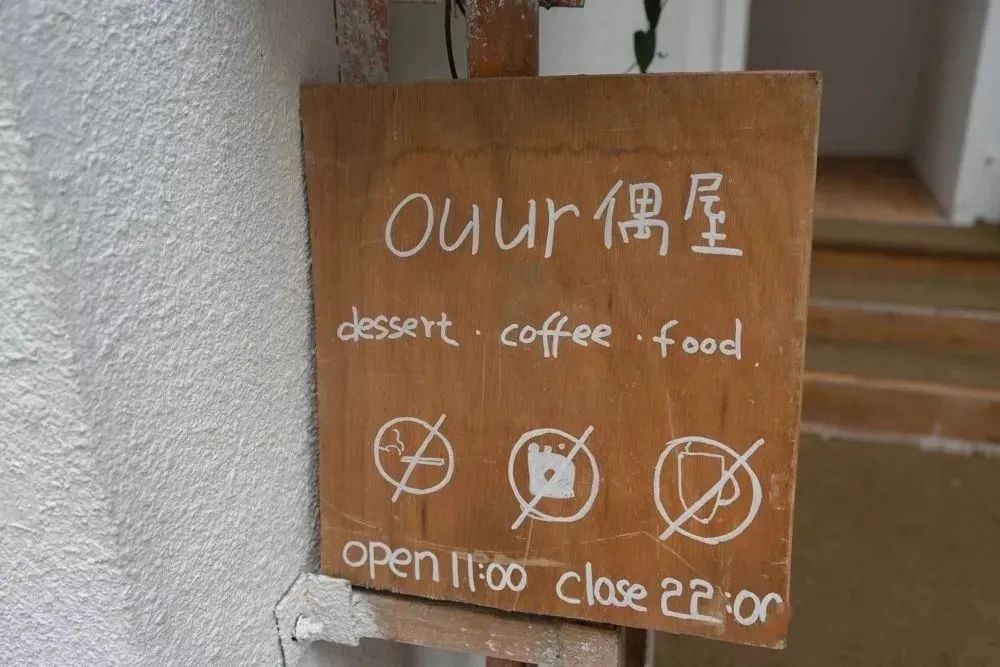 ouur 偶屋
dessert · coffee · food
open 11:00 close 22:00